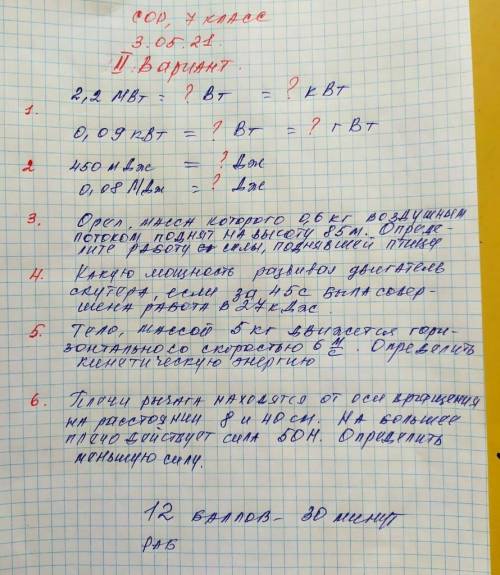 СОР, 7 КЛАСС
3.05.21.
II Вариант.
1. 2,2 МВт = ? Вт = ? кВт
0,09 кВт = ? Вт = ? гВт
2 450 мДж = ? Дж
0,08 МДж = ? Дж
3. Орел, масса которого 0,6 кг воздушным
потоком поднят на высоту 85 м. Опреде-
лите работу силы, поднявшей птицу
4. Какую мощность развивая двигатель
скутера, если за 45 с была совер-
шена работа в 27 кДж.
5. Тело, массой 5 кг движется гори-
зонтального скоростью 6 м/с. Определить
кинетическую энергию
6. Плечи рычага находятся от оси вращения
на расстоянии 8 и 40 см. На большее
плечо действует сила 50Н. Определить
меньшую силу.
12 баллов - 30 минут
РАБ